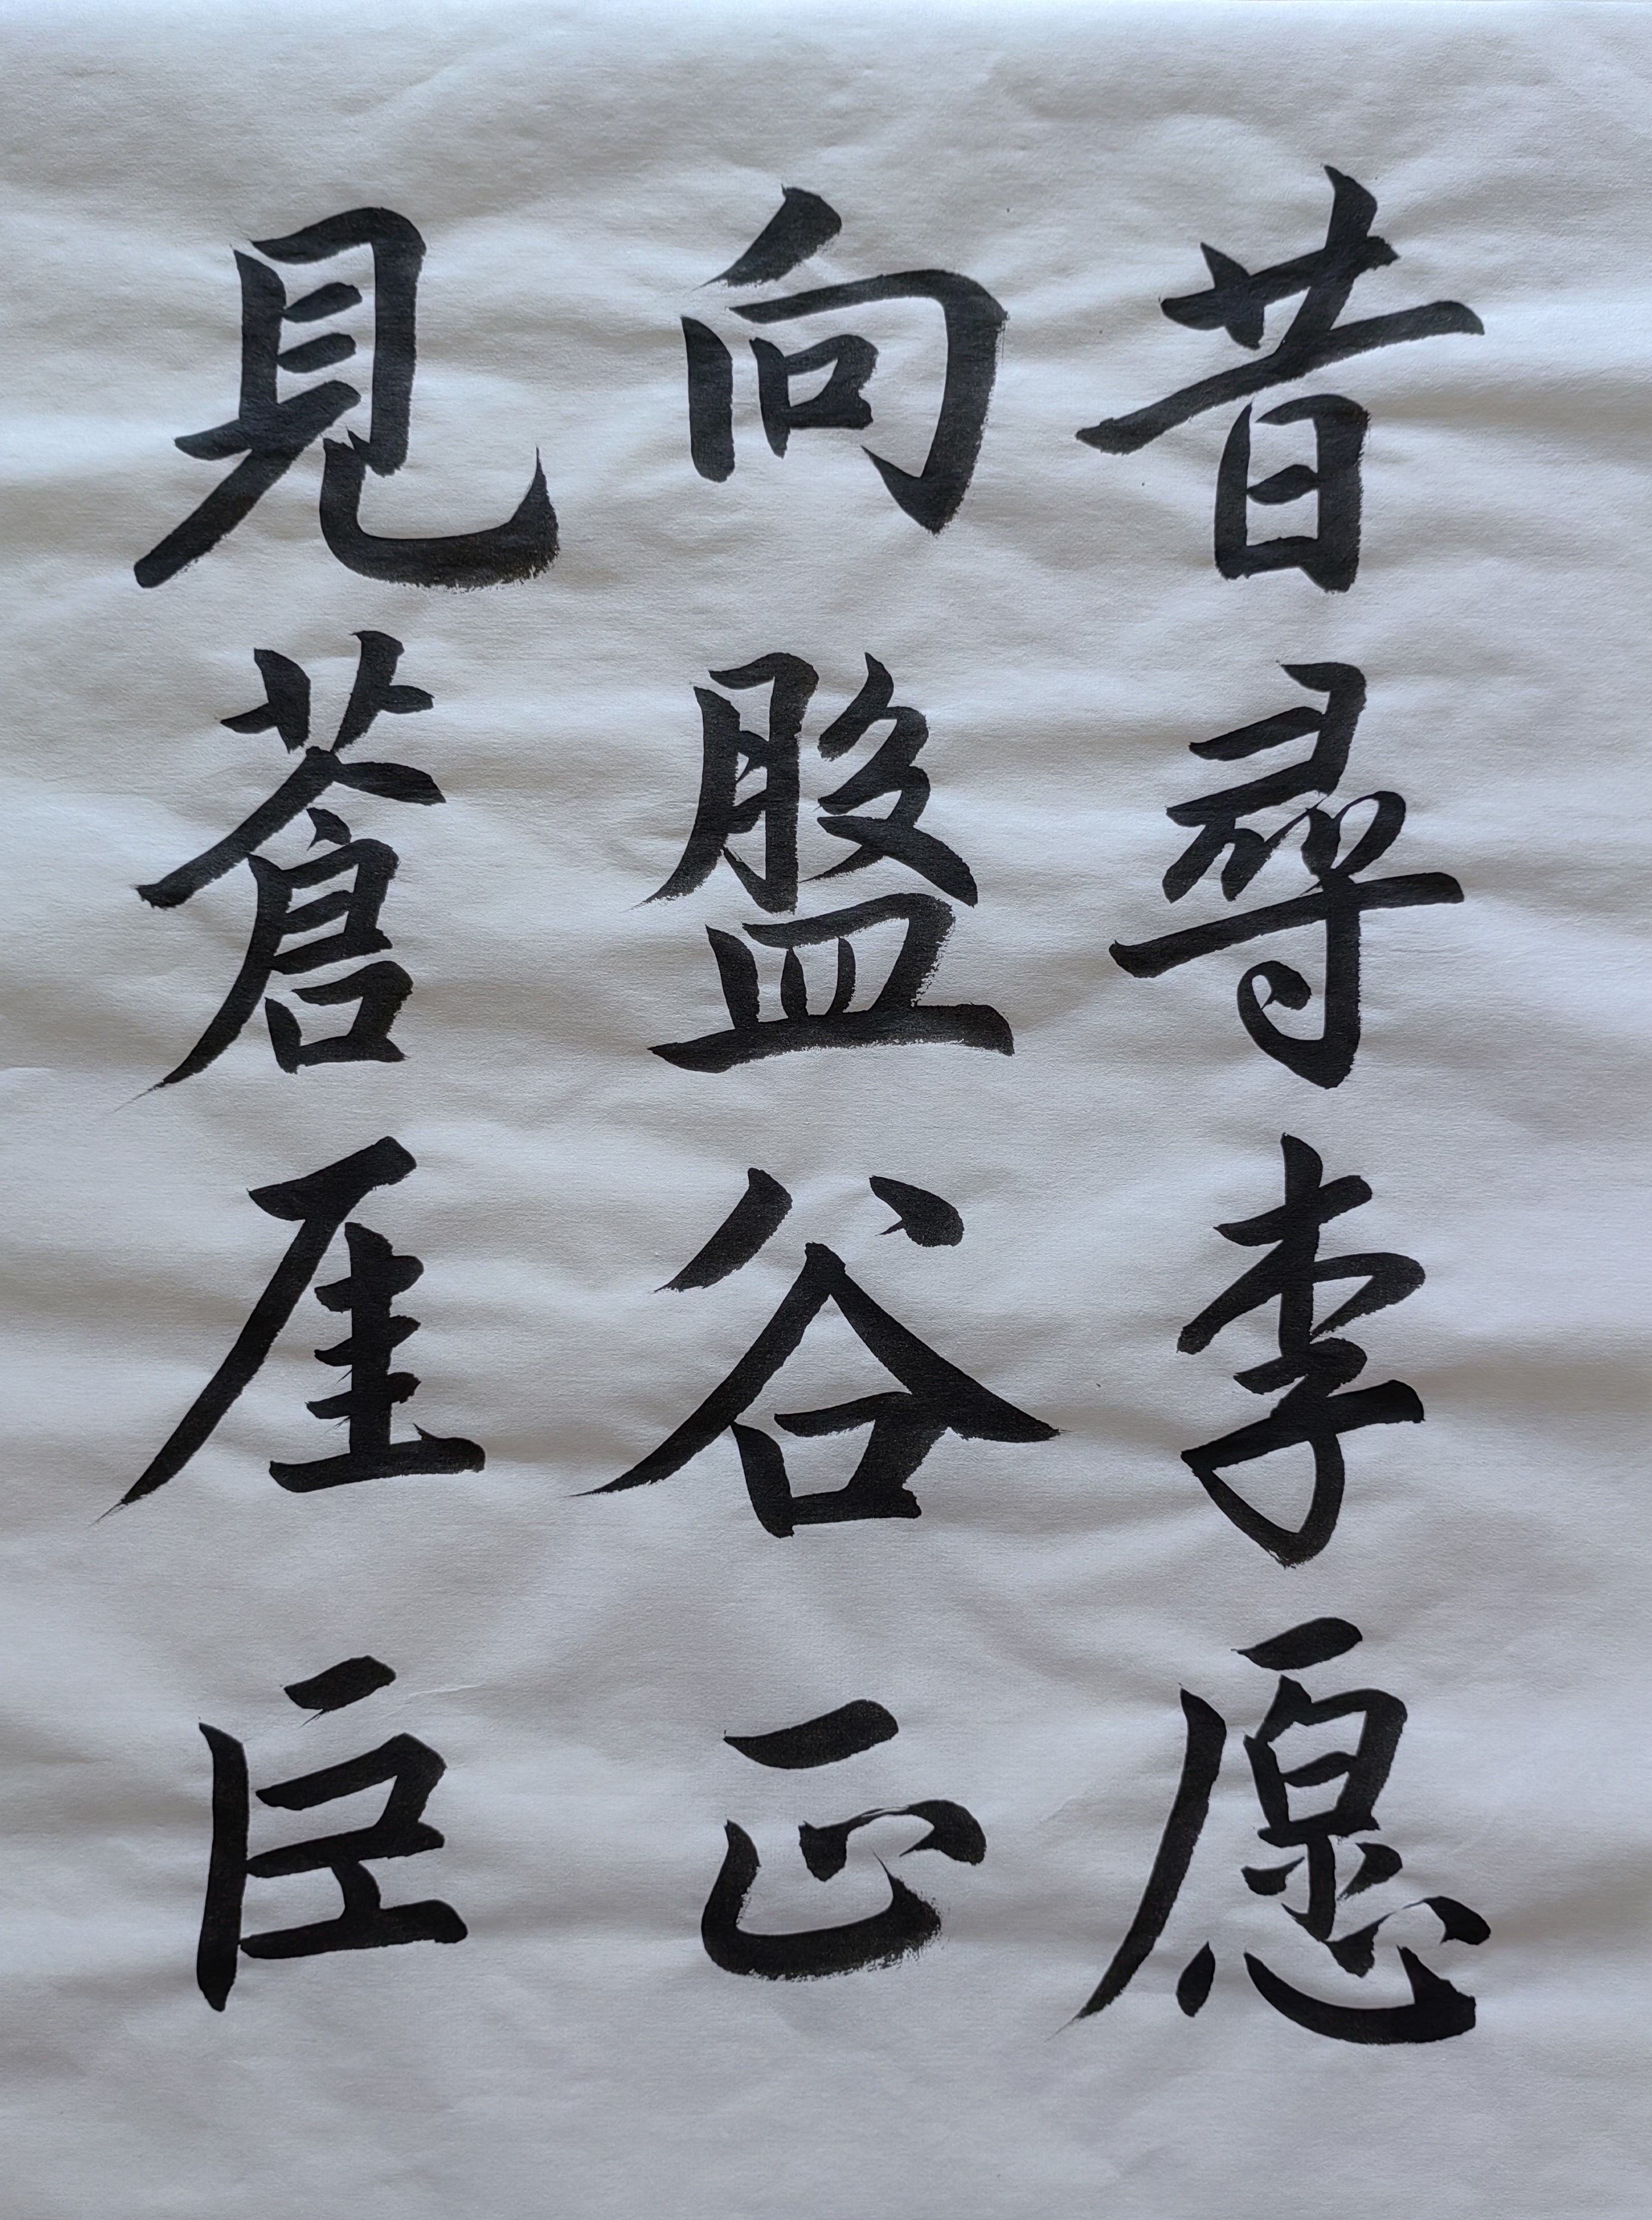 昔尋李愿
向盤谷正
見蒼厓臣